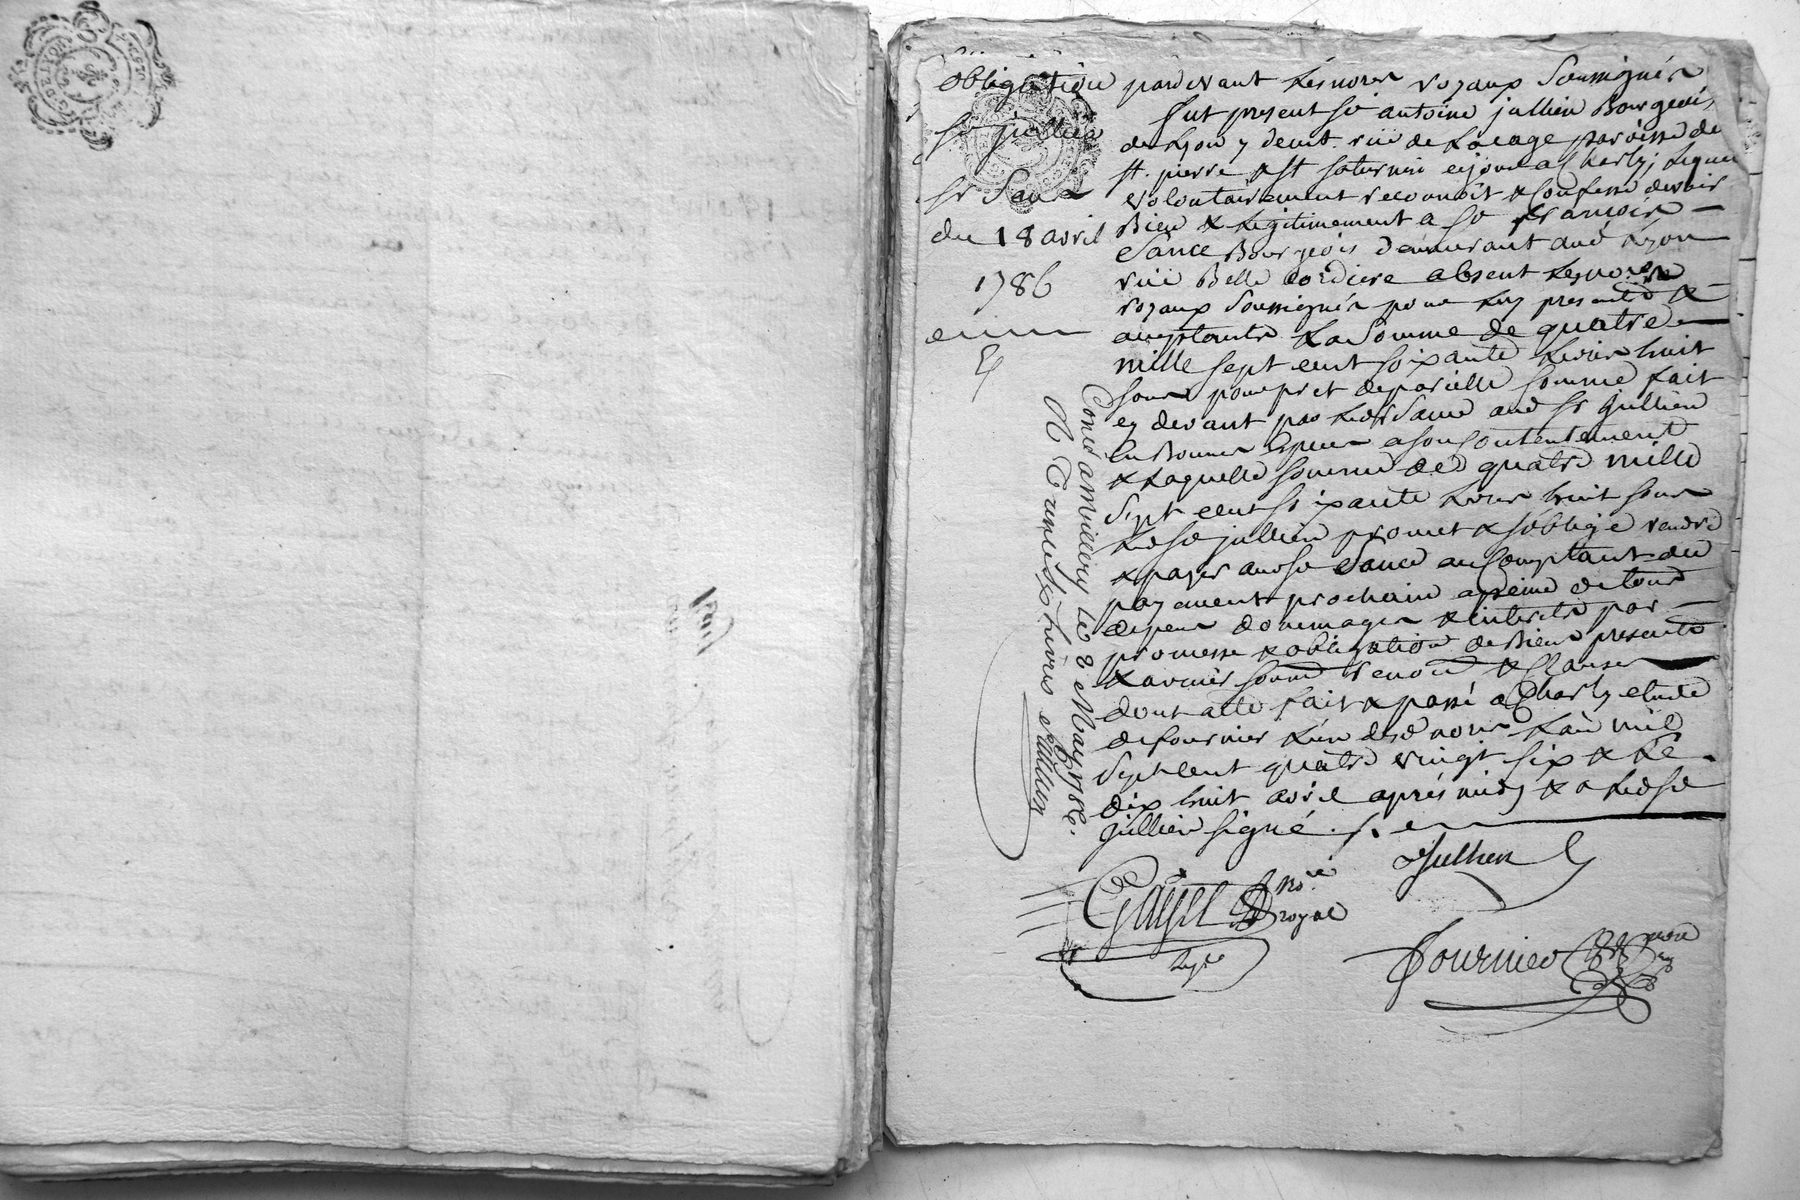 obligation
sr jullien
sr Sance
du 18 avril
1786
pardevant les nores royaux soussignés
fut present sr antoine jullien Bourgeois
de Lyon y demt. rüe de Lacage paroisse de
st. pierre & st saturnin ejour a Charly; lequel
volontairement reconnoit & confesse devoir
Bien & legitimement a sr françois
Sance Bourgeois demeurant aud Lyon
rüe Belle cordiere absent les nores
royaux soussignés pour luy presents &
acceptants La somme de quatre
mille sept cent soixante livres huit
sous pour pret de pareille somme fait
cy devant par led sr Sance aud sr jullien
en Bonnes Especes a son contentement
& Laquelle somme de quatre mille
Sept cent soixante livres huit sous
led sr jullien promet & soblige rendre
& payer aud sr Sance au comptant du
payement prochain apeine de tous
depens dommages & interets par
promesse & obligation de Biens presents
& avenir soumis renonce & Clauses
dont acte fait & passé a Charly etude
de fournier L'un desd nores L'an mil
Sept cent quatre vingt six & Le
dix huit avril aprés midy & a led sr
jullien signé.
Jullien
Gayet
nore
royal
Fournier
Conté a Millery Le 8 May 1786.
R Trente Livres
G. DE LYON